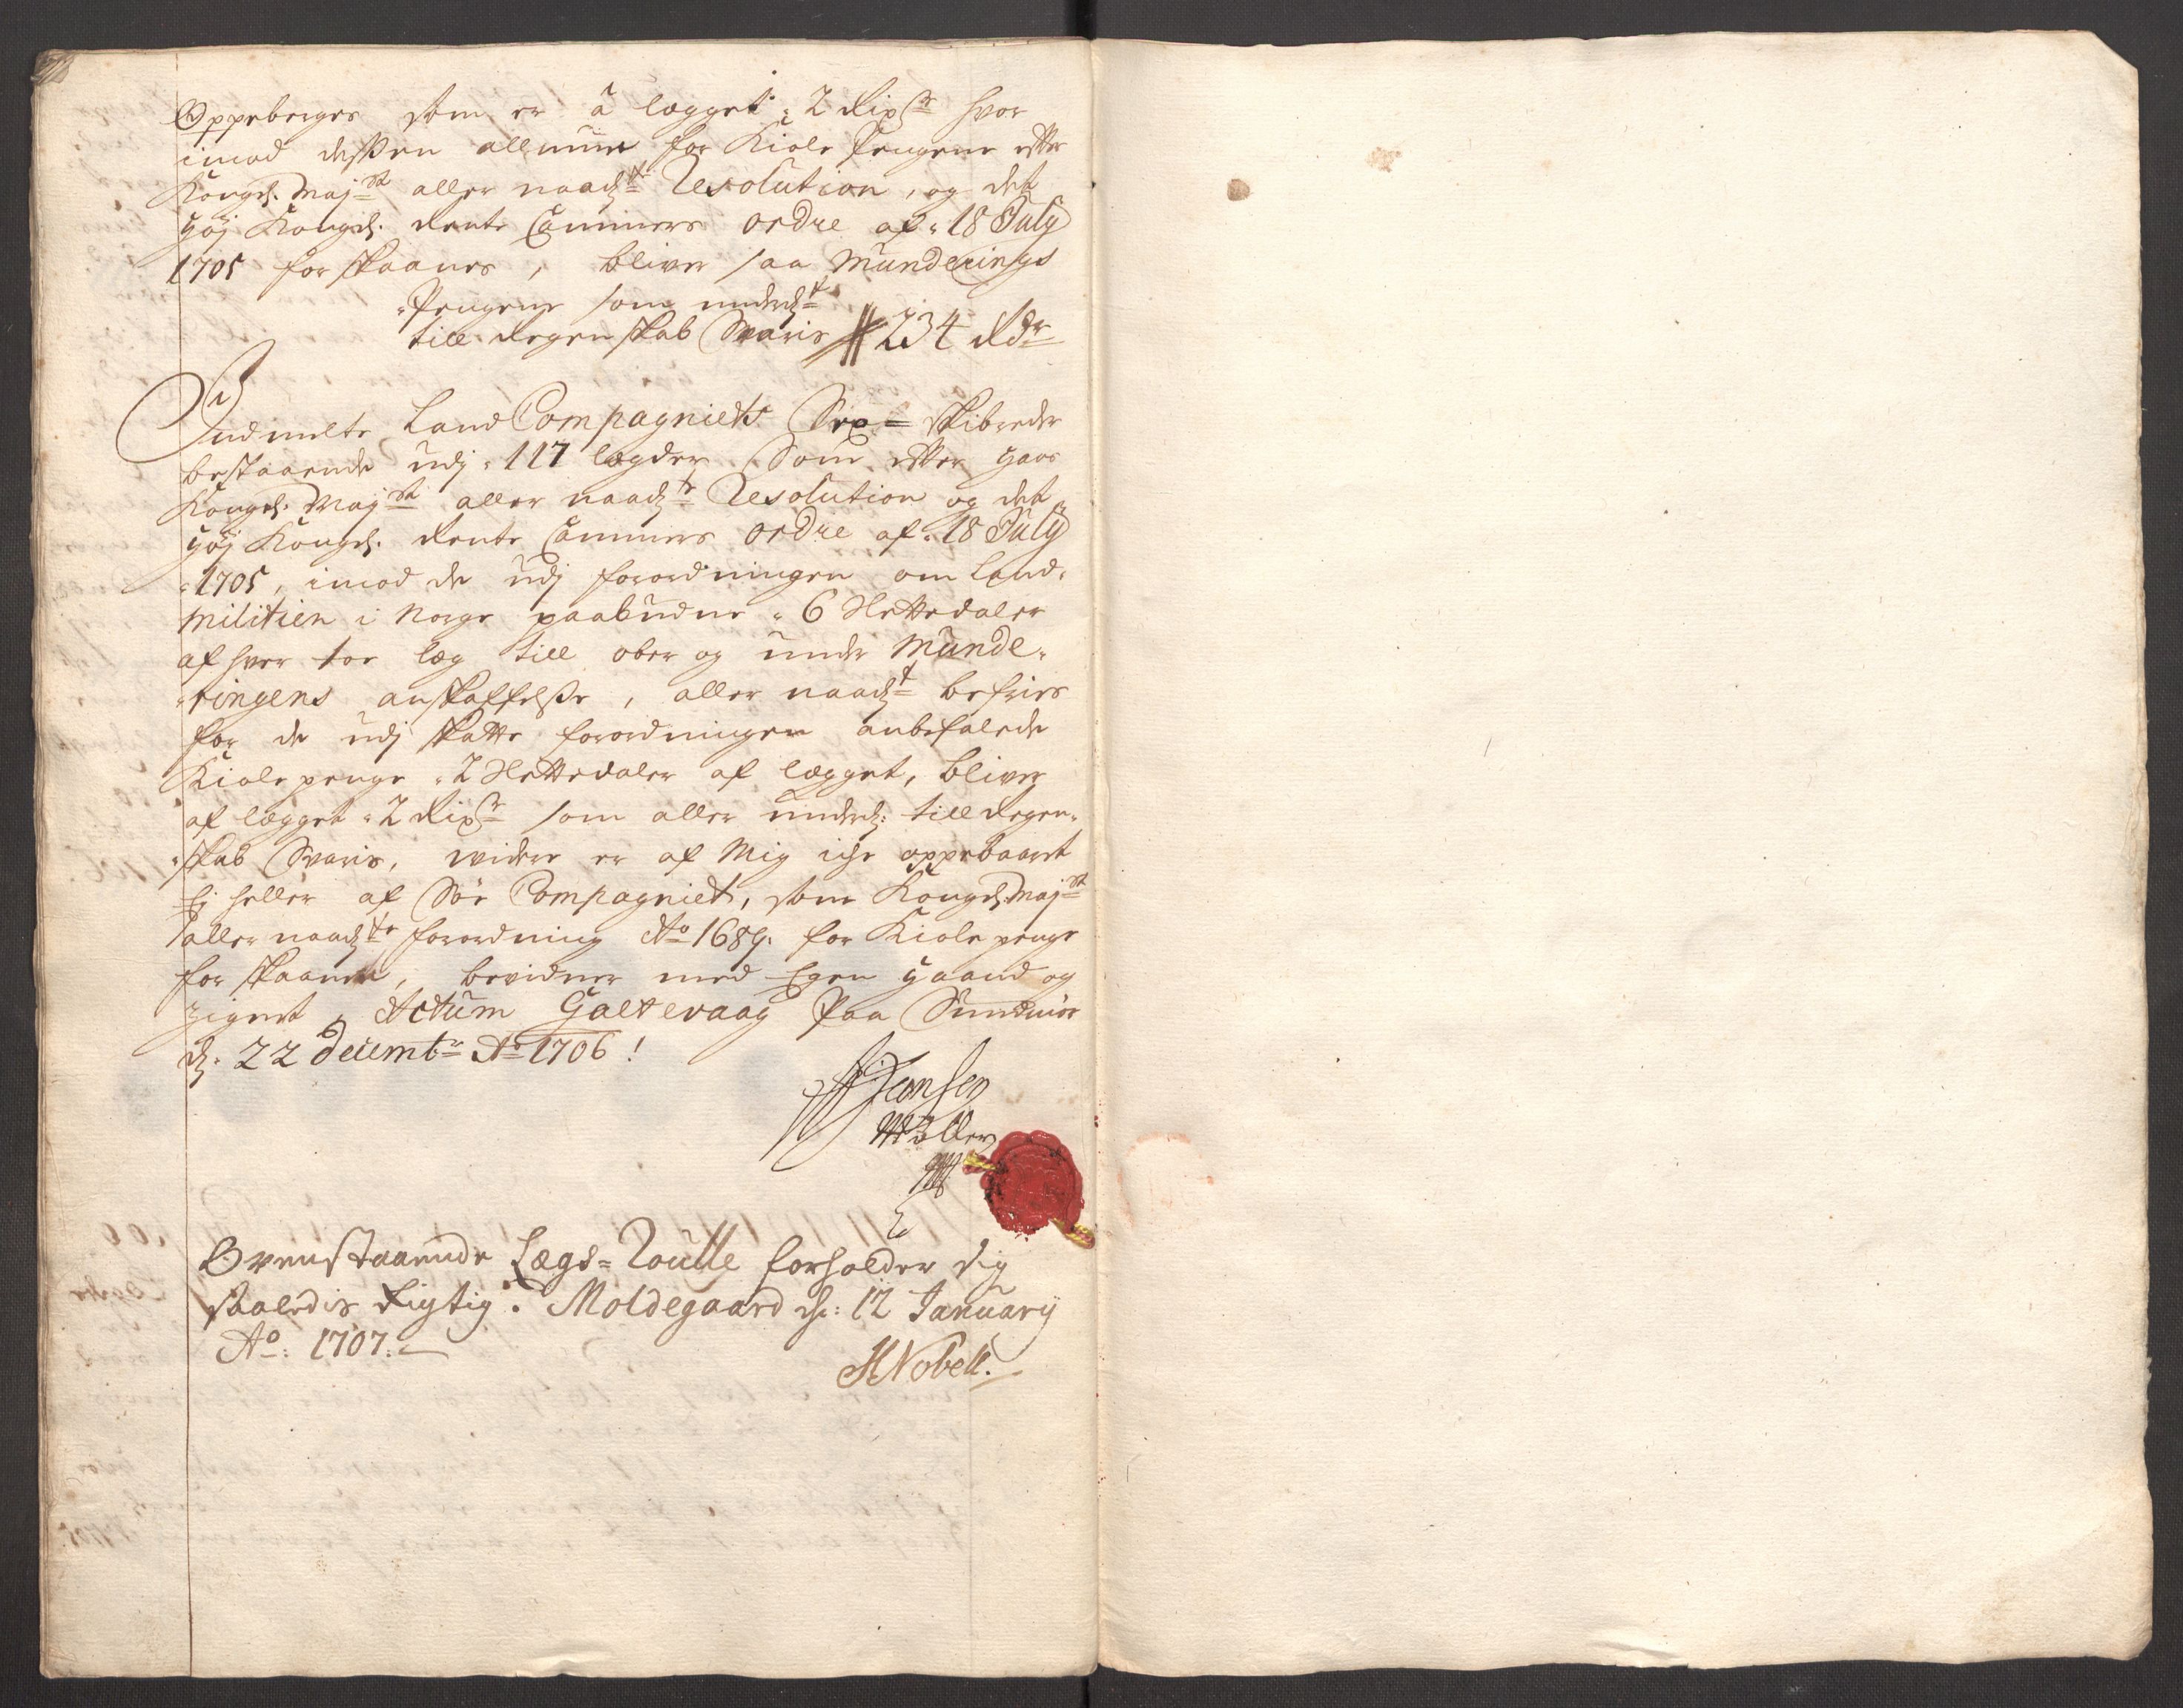 Oppeberges som er â lægget 2 Rixdr hvor
imod dessen allmue for Kiole Pengene efter
Kongel. Maystt aller naadste Resolution, og det
høj Kongel. Rente Cammers ordre af 18 July
1705 forskaanes, bliver saa Munderings
Pengene som underdst
till Regenskab Svaris 234 Rdr
Indmelte Land Compagniets Sex skibreder
bestaaende udj 117 legder Som efter hans
Kongel. Maystt aller naadste Resolution og det
høj Kongel. Rente Cammers ordre af 18 July
1705, imod de udj forordningen om Land-
militien i Norge paabudne 6 Slettedaler
af hver toe læg till ober og under Munde-
ringens anskaffelsse, aller naadst befries
for de udj skatte forordningen anbefalede
Kiole penge 2 Slettedaler af lægget, bliver
af lægget 2 Rixdr som aller underd: till Regen-
skab Svaris, widere er af Mig iche oppebaaret
Ej heller af Söe Compagniet, som Kongel. Maystt
aller naadste forordning Ao 1689. for Kiole penge
forskaaner, bevidner med Egen haand og
zignet, Actum Galtevaag Paa Sundmör
d. 22 decembr Ao 1706!
Jensen
Möller
Ovenstaaende Lægs-Roulle forholder sig
saaledis Rigtig. Moldegaard d: 12 January
Ao: 1707.
HNobell.